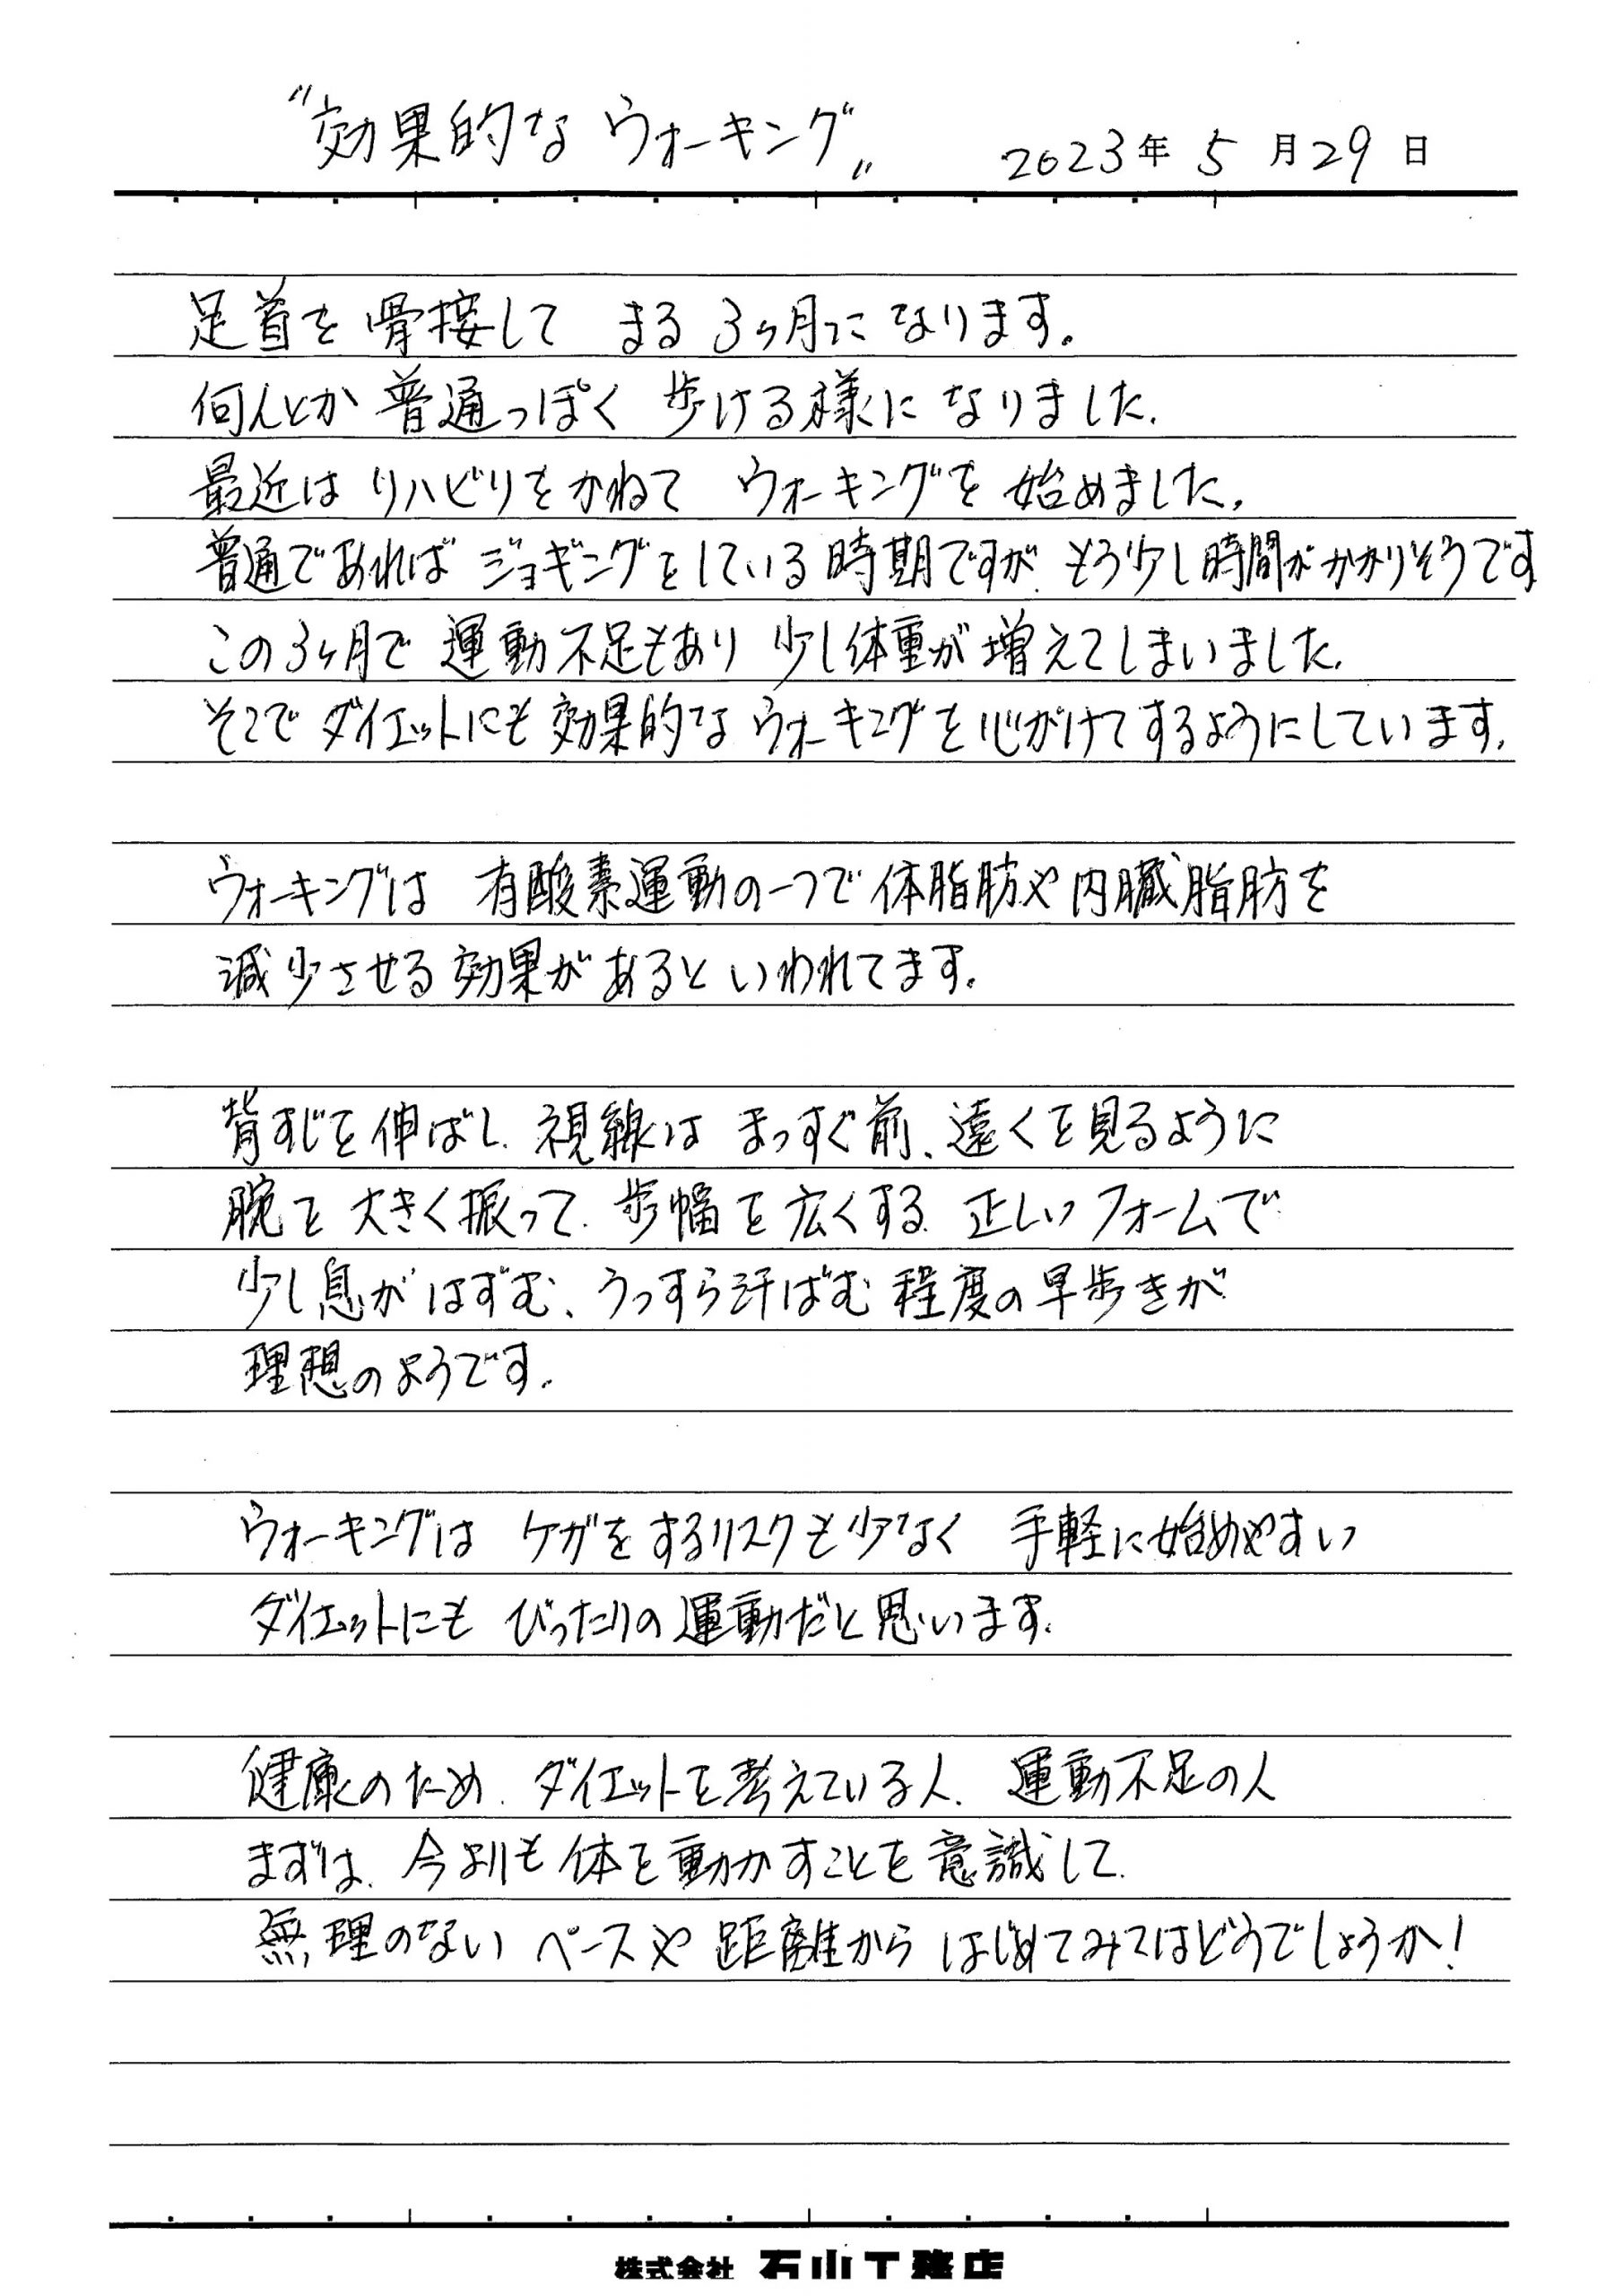 〝効果的な ウォーキング〟 2023年 5月29日
足首を骨接して まる3ヶ月になります。
何んとか普通っぽく 歩ける様になりました。
最近はリハビリをかねて ウォーキングを始めました。
普通であれば ジョギングをしている時期ですが、もう少し時間がかかりそうです
この3ヶ月で運動不足もあり 少し体重が増えてしまいました。
そこでダイエットにも効果的なウォーキングを心がけてするようにしています。
ウォーキングは 有酸素運動の一つで体脂肪や内臓脂肪を
減少させる効果があるといわれてます。
背すじを伸ばし、視線はまっすぐ前、遠くを見るように
腕を大きく振って、歩幅を広くする、正しいフォームで
少し息がはずむ、うっすら汗ばむ程度の早歩きが
理想のようです。
ウォーキングは ケガをするリスクも少なく 手軽に始めやすい
ダイエットにも ぴったりの運動だと思います。
健康のため、ダイエットを考えている人、運動不足の人
まずは、今よりも体を動かすことを意識して、
無理のない ペースや距離から はじめてみてはどうでしょうか!
株式会社 石山工務店